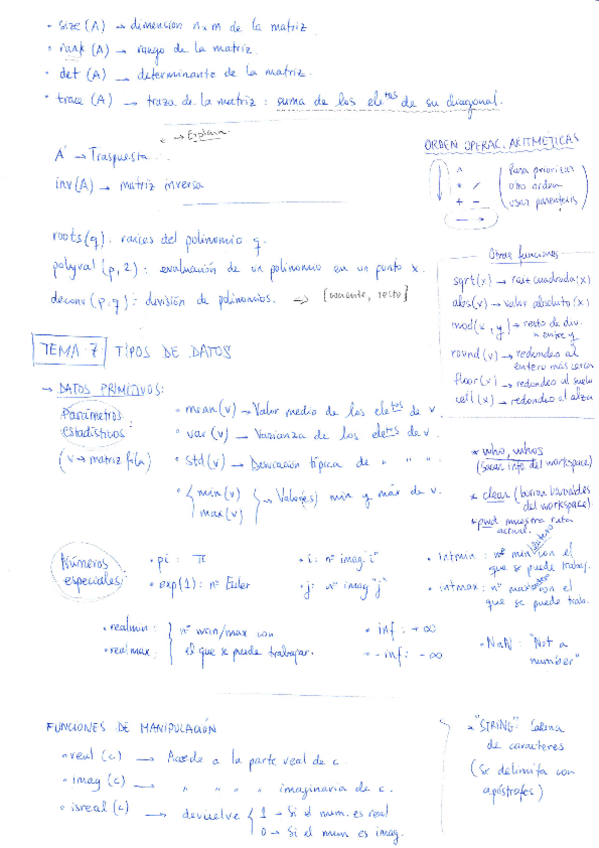 • size (A) → dimension n x m de la matriz
• rank (A) → rango de la matriz.
• det (A) → determinante de la matriz.
• trace (A) → traza de la matriz : suma de los eletos de su diagonal.
A' → Traspuesta
inv(A) → matriz inversa
ORDEN OPERAC. ARITMÉTICAS
^
* /
+ -
(Para priorizar
otro orden
usar parentesis)
roots(q) : raices del polinomio q.
polyval (p, 2) : evaluación de un polinomio en un punto x.
deconv (p, q) : división de polinomios. → [cociente, resto]
Otras funciones
sqrt(x) → raiz cuadrada (x)
abs(x) → valor absoluto (x)
mod(x, y) → resto de div.
x entre y
round (v) → redondeo al
entero más cerca
floor (x) → redondeo al suelo
ceil (x) → redondeo al alza
TEMA 7 TIPOS DE DATOS
→ DATOS PRIMITIVOS:
Parámetros
estadísticos:
(v → matriz fila)
• mean(v) → Valor medio de los eletos de v.
• var (v) → Varianza de los eletos de v.
• std (v) → Desviación típica de " " "
• { min (v)
max (v) } → Valor(es) min y máx de v.
* who, whos
(Sacar info del workspace)
* clear (borrar variables
del workspace)
* pwd muestra ruta
actual.
Números
especiales:
• pi : π
• exp(1) : nº Euler
• i : nº imag. "i"
• j : nº imag "j"
• intmin : nº min entero con el
que se puede trabaj.
• intmax : nº max entero con el
que se puede trab.
• realmin :
• realmax :
nº min/max con
el que se puede trabajar.
• inf : + ∞
• - inf : - ∞
• NaN : "Not a
number"
FUNCIONES DE MANIPULACIÓN
• real (c) → Accede a la parte real de c.
• imag (c) → " " " " imaginaria de c.
• isreal (c) → devuelve { 1 → Si el num. es real
0 → Si el num es imag.
• "STRING": Cadena
de caracteres
(Se delimita con
apóstrofes)